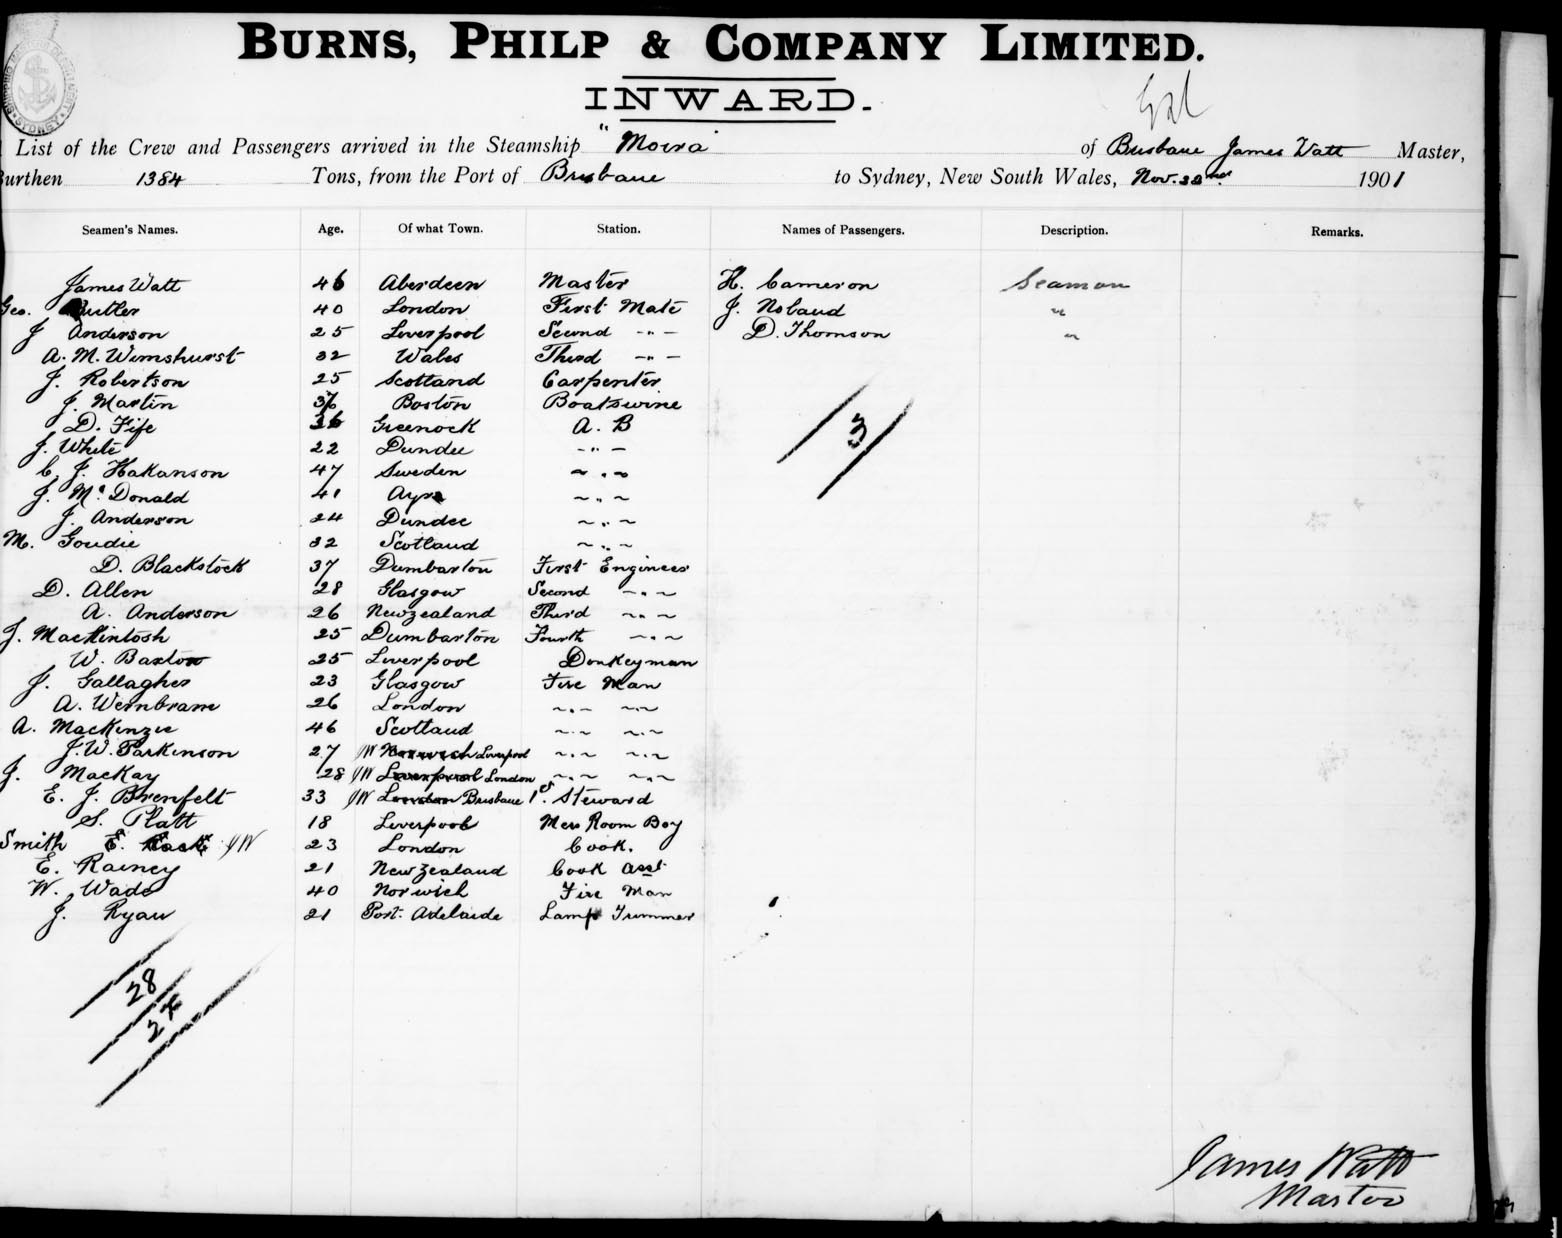 BURNS, PHILP & COMPANY LIMITED.
INWARD.
SYDNEY
List of the Crew and Passengers arrived in the Steamship "Moira" of Brisbane James Watt Master,
Burthen 1384 Tons, from the Port of Brisbane to Sydney, New South Wales, Nov. 1901
Seamen's Names. Age. Of what Town. Station. Names of Passengers. Description. Remarks.
James Watt 46 Aberdeen Master H. Cameron Seaman
Geo. Butler 40 London First Mate J. Nobaud "
J Anderson 25 Liverpool Second -"- D. Thomson "
A. M. Wimshurst 32 Wales Third -"-
J. Robertson 25 Scotland Carpenter
J. Martin 36 Boston Boatswine
D. Fife 36 Greenock A. B
J. White 22 Dundee -"-
C. J. Hakanson 47 Sweden ~"~
J. Mc Donald 41 Ayre ~"~
J. Anderson 24 Dundee ~"~
M. Goudie 32 Scotland ~"~
D. Blackstock 37 Dumbarton First Engineer
D. Allen 28 Glasgow Second ~"~
A. Anderson 26 Newzealand Third ~"~
J. Mackintosh 25 Dumbarton Fourth ~"~
W. Baxton 25 Liverpool Donkeyman
J. Gallagher 23 Glasgow Fire Man
A. Wernbram 26 London ~"~ ~"~
A. Mackenzie 46 Scotland ~"~ ~"~
J. W. Parkinson 27 JW Norwich Liverpool ~"~ ~"~
J. Mackay 28 JW Liverpool London ~"~ ~"~
E. J. Brenfelt 33 JW London Brisbane 1st Steward
S. Platt 18 Liverpool Mess Room Boy
Smith E. JW 23 London Cook.
E. Rainey 21 New Zealand Cook asst
W. Wade 40 Norwich Fire Man
J. Ryan 21 Port Adelaide Lamp Trimmer
3
28
James Watt
Master